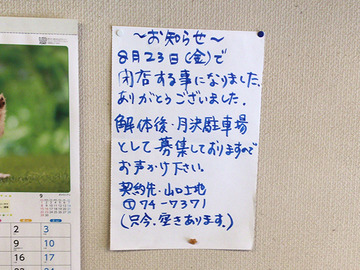 ～お知らせ～
8月23日(金)で
閉店する事になりました、
ありがとうございました.
解体後・月決駐車場
として募集しておりますので
お声かけ下さい。
契約先・山口土地
① 74-7371
(只今、空きあります。)
2 3
9 10
16 17